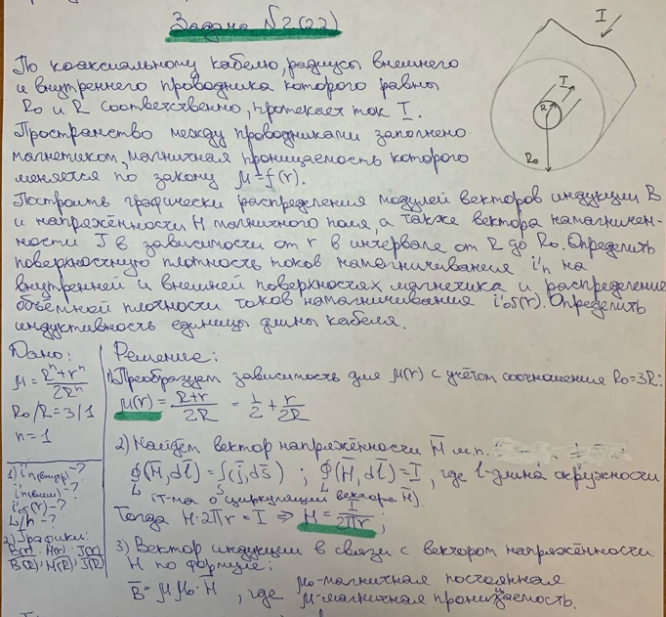 Задача №2 (22)
По коаксиальному кабелю, радиусы внешнего
и внутреннего проводника которого равны
R₀ и R соответственно, протекает ток I.
Пространство между проводниками заполнено
магнетиком, магнитная проницаемость которого
меняется по закону μ=f(r).
Построить графически распределения модулей векторов индукции B
и напряжённости H магнитного поля, а также вектора намагничен-
ности J в зависимости от r в интервале от R до R₀. Определить
поверхностную плотность токов намагничивания i'п на
внутренней и внешней поверхностях магнетика и распределение
объёмной плотности токов намагничивания i'об(r). Определить
индуктивность единицы длины кабеля.
I
I
R
R₀
Дано:
μ = (Rⁿ+rⁿ)/(2Rⁿ)
R₀/R = 3/1
n=1
1) i'п(внутр)-?
i'п(внеш)-?
i'об(r)-?
L/h-?
2) Графики:
B(r), H(r), J(r)
B(R), H(R), J(R)
Решение:
1. Преобразует зависимость для μ(r) с учётом соотношения R₀=3R:
μ(r) = (R+r)/(2R) = 1/2 + r/(2R)
2) Найдём вектор напряжённости H̄ м.п.
∮(H̄,dl̄)=∫(j̄,ds̄) ; ∮(H̄,dl̄)=I, где l-длина окружности
L S L
(т-ма о циркуляции вектора H̄).
Тогда H·2πr=I ⇒ H = I/(2πr);
3) Вектор индукции в связи с вектором напряжённости
H по формуле:
B̄=μμ₀·H̄, где μ₀-магнитная постоянная
μ-магнитная проницаемость.